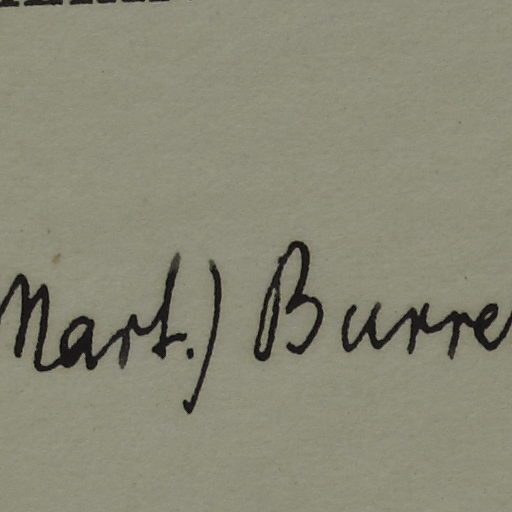 Mart.) Burre